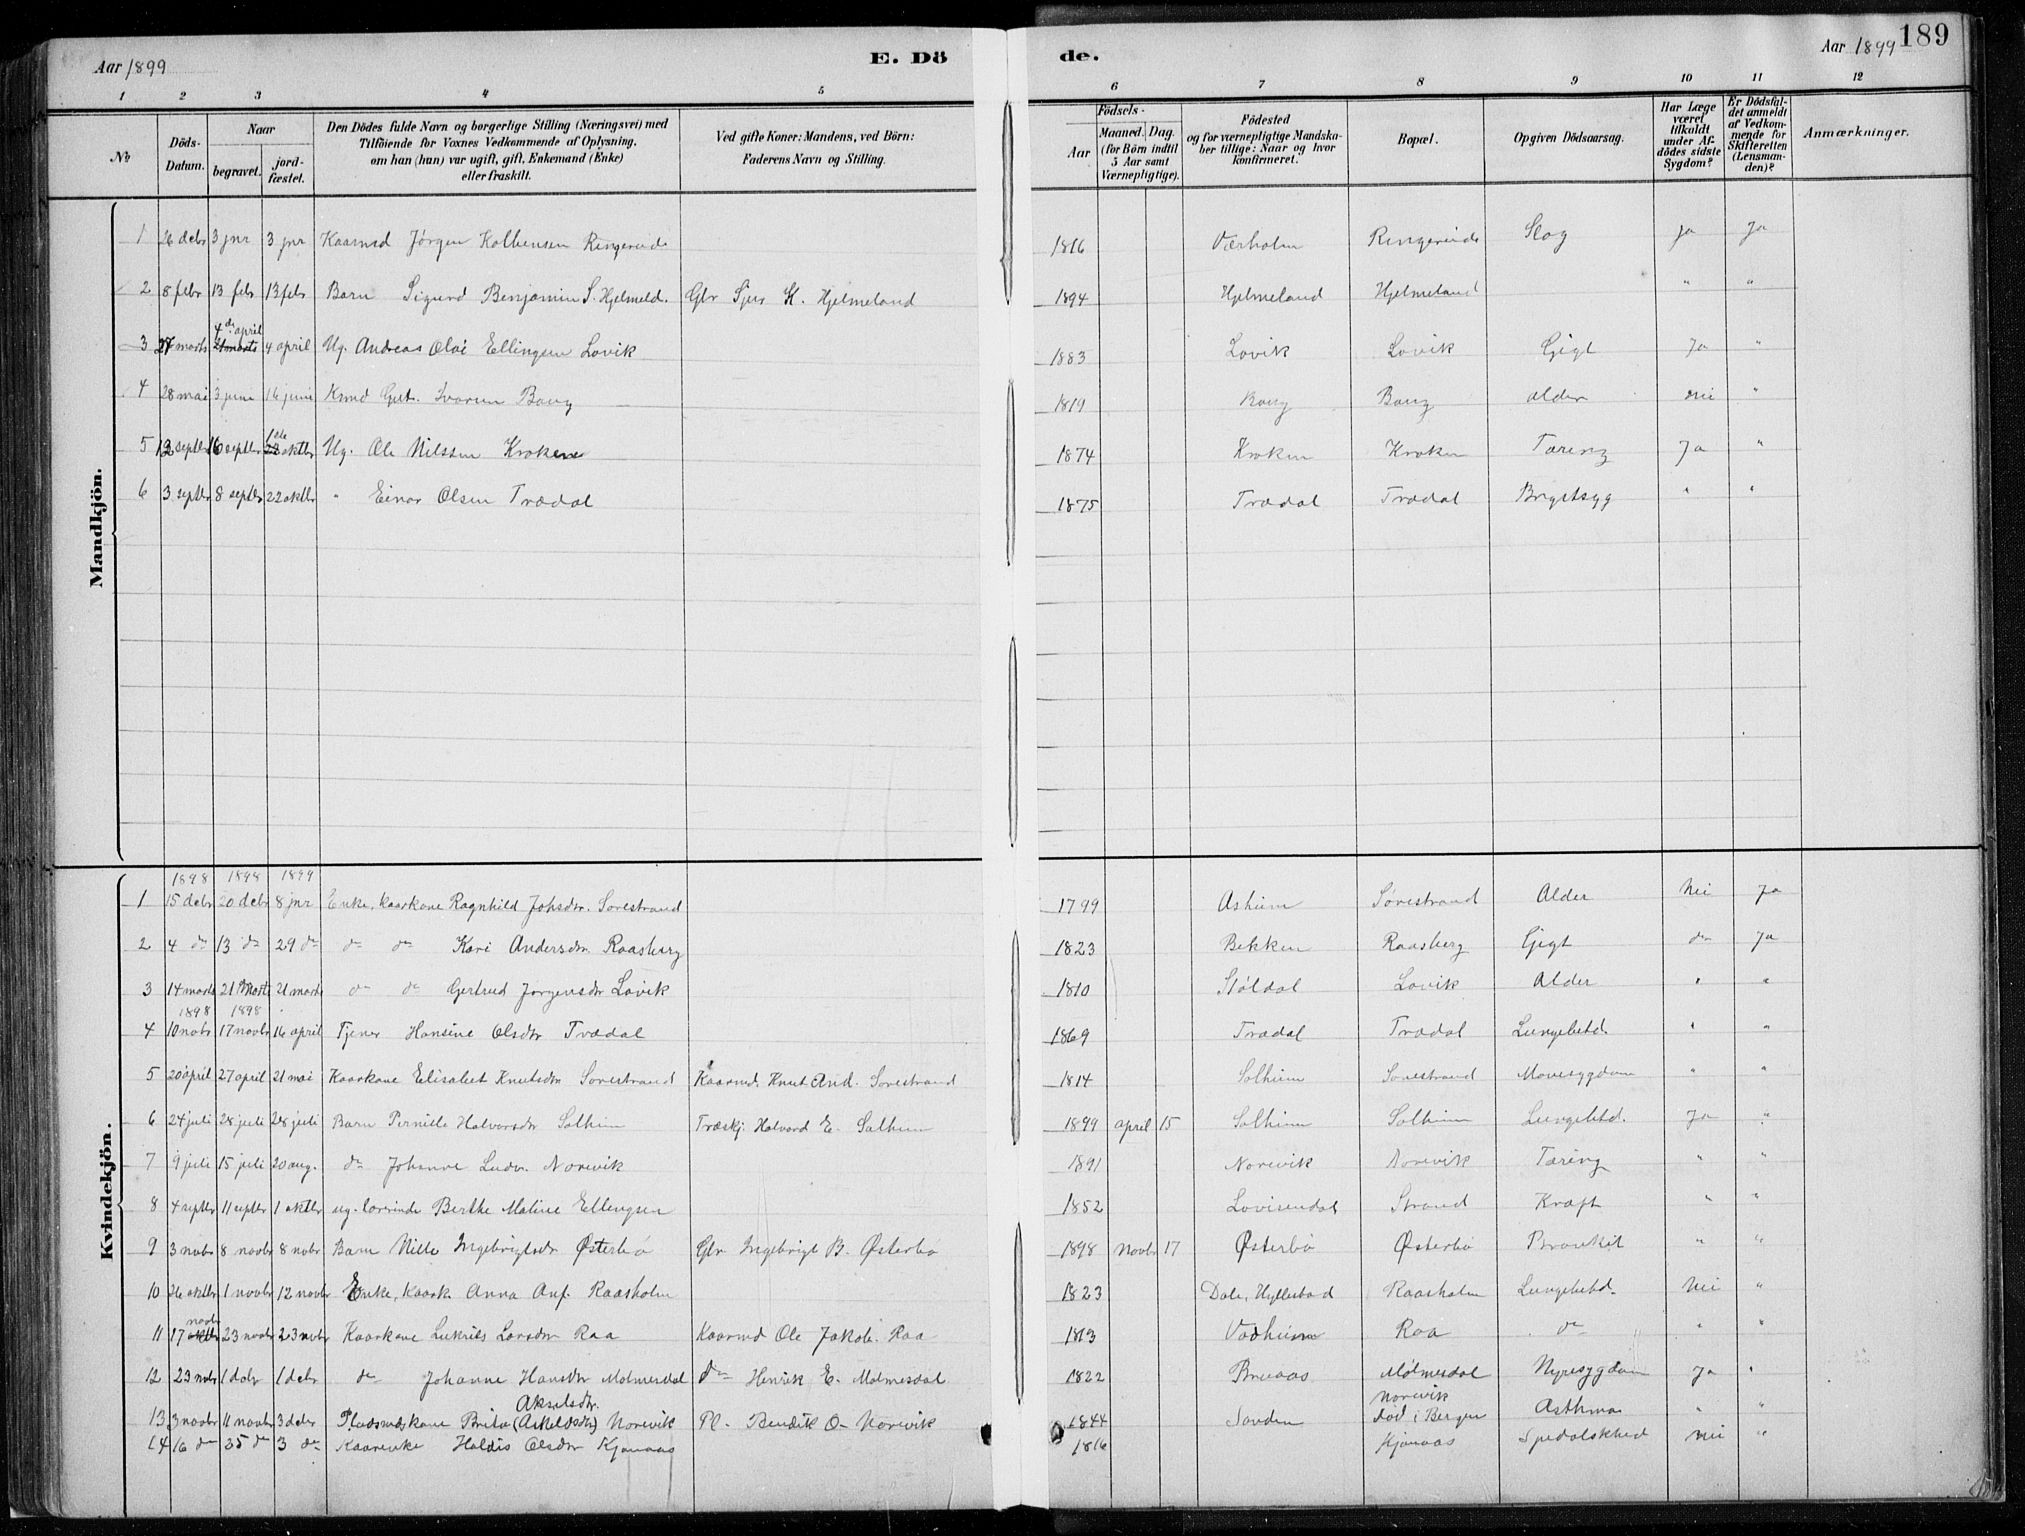 Aar 1899 E. Dö de. Aar 1899 189
1 2 3 4 5 6 7 8 9 10 11 12
No
Döds-Datum.
Naar
begravet.
jord-fæstet.
Den Dödes fulde Navn og borgerlige Stilling (Næringsvei) med
Tilföiende for Voxnes Vedkommende af Oplysning,
om han (hun) var ugift, gift, Enkemand (Enke)
eller fraskilt.
Ved gifte Koner: Mandens, ved Börn:
Faderens Navn og Stilling.
Födsels-
Aar
Maaned. Dag.
(for Börn indtil
5 Aar samt
Værnepligtige).
Födested
og for værnepligtige Mandska-
ber tillige: Naar og hvor
konfirmeret.
Bopæl.
Opgiven Dödsaarsag.
Har Læge
været
tilkaldt
under Af-
dödes sidste
Sygdom?
Er Dödsfal-
det anmeldt
af Vedkom-
mende for
Skifteretten
(Lensman-
den)?
Anmærkninger.
Mandkjön.
1 26 debr 3 jnr 3 jnr Kaarmd Jørgen Kolbensen Ringereide 1816 Værholm Ringereide Slag ja ja
2 8 febr 13 febr 13 febr Barn Sigurd Benjamin S. Hjelmeld. Gbr Sjur K. Hjelmeland 1894 Hjelmeland Hjelmeland " "
4 de april
3 27 marts 4 april Ug. Andreas Olai Ellingsen Lavik 1883 Lavik Lavik Gigt Ja "
4 28 mai 3 juni 16 juni Knud Gut. Ivarsen Bang 1819 Bang Bang alder nei "
1 de
5 13 septbr 16 septbr oktbr Ug. Ole Nilssen Kroken 1874 Kroken Kroken Tæring Ja "
6 3 septbr 8 septbr 22 oktbr " Einar Olsen Trædal 1875 Trædal Trædal Brystsyg " "
Kvindekjön.
1898 1898 1899
1 15 debr 20 debr 8 jnr Enke, kaarkone Ragnhild Johsdtr. Sørestrand 1799 Asheim Sørestrand Alder Nei Ja
2 4 do 13 do 29 do do do Kari Andersdtr. Raasberg 1823 Bekken Raasberg Gigt do Ja
3 14 marts 21 marts 21 marts do do Gertrud Jørgensdtr Lavik 1810 Støldal Lavik Alder " "
1898 1898
4 10 nobr 17 novbr 16 april Tjener Hansine Olsdtr Trædal 1869 Trædal Trædal Lungebetd. " "
5 20 april 27 april 21 mai Kaarkone Elisabet Knutsdtr Sørestrand Kaarmd. Knut And. Sørestrand 1814 Solheim Sørestrand Mavesygdom " "
6 24 juli 28 juli 28 juli Barn Pernille Halvorsdtr Solheim Træskj. Halvord E. Solheim 1899 april 15 Solheim Solheim Lungebetd. Ja "
7 9 juli 15 juli 20 aug. do Johanne Ludv. Norevik 1891 Norevik Norevik Tæring " "
8 4 septbr 11 septbr 1 oktbr ug. Berthe Maline Ellingsen 1852 Lovisendal Strand Kræft " "
9 3 nobr 8 novbr 8 nobr Barn Nille Ingebrigtsdtr Østerbø Gbr Ingebrigt B. Østerbø 1898 Novbr 17 Østerbø Østerbø Bronkit " "
10 26 oktbr 1 novbr 12 novbr Enke, Kaark. Anna Anf. Raasholm 1823 Dale, Hyllestad Raasholm Lungebetd. Nei "
novbr
11 17 oktbr 23 novbr 23 nobr Kaarkone Lukris Larsdtr Raa Kaarmd Ole Jakob. Raa 1813 Vadheim Raa do " "
12 23 nobr 1 debr 1 debr do Johanne Hansdtr Molmesdal do Henrik E. Molmesdal 1822 Bruaas Mølmesdal Nyresygdom Ja "
Akselsdtr. Norevik
13 3 novbr 11 novbr 3 debr Pladsmdskone Brita (Askeldsdtr) Norevik Pl. Bendik O. Norevik 1844 Sanden død i Bergen Asthma " "
14 16 do 25 do 3 do Kaarenke Haldis Olsdtr Kjønaas 1816 Kjønaas Spedalskhed nei "